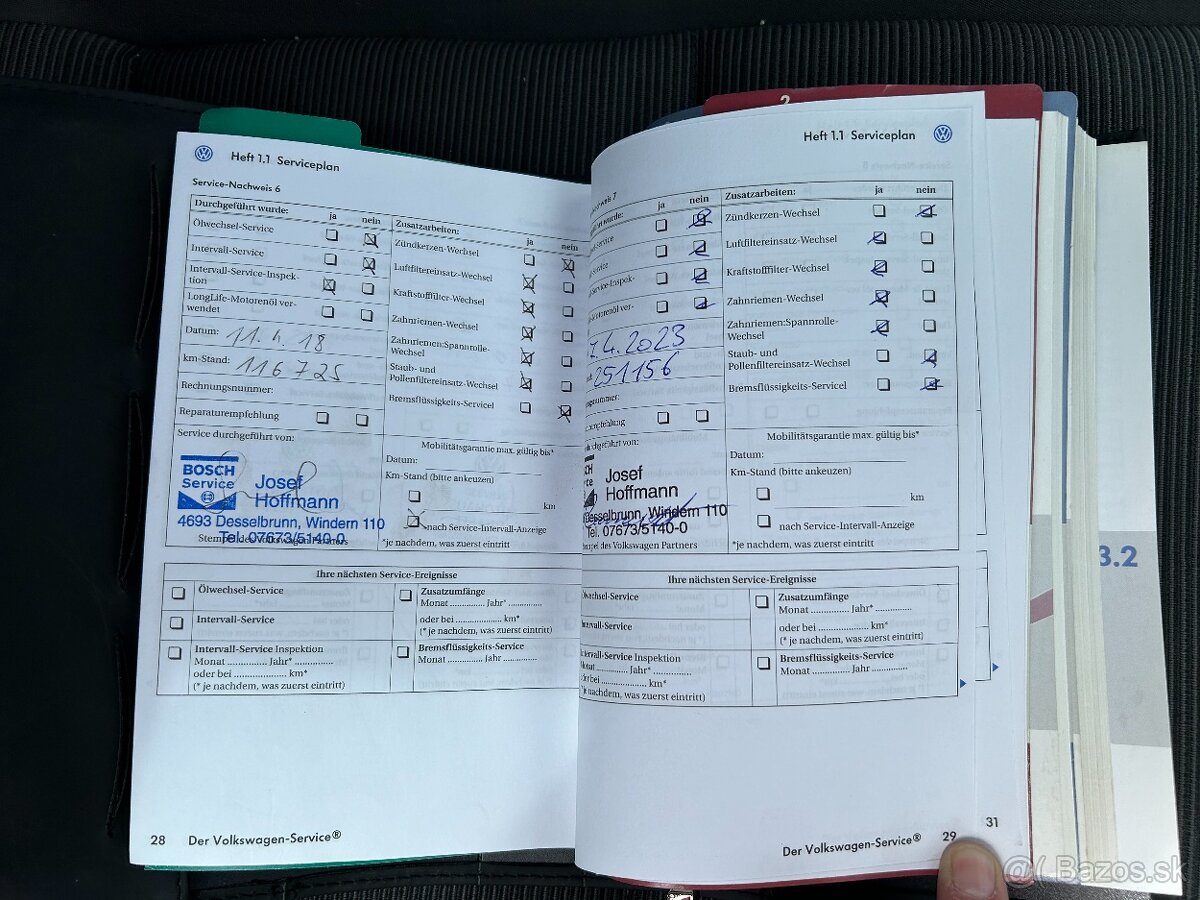 Heft 1.1 Serviceplan
Service-Nachweis 6
Durchgeführt wurde: ja nein
Ölwechsel-Service
Intervall-Service
Intervall-Service-Inspek-
tion
LongLife-Motorenöl ver-
wendet
Datum: 11.4.18
km-Stand: 116725
Rechnungsnummer:
Reparaturempfehlung
Zusatzarbeiten: ja nein
Zündkerzen-Wechsel
Luftfiltereinsatz-Wechsel
Kraftstofffilter-Wechsel
Zahnriemen-Wechsel
Zahnriemen:Spannrolle-
Wechsel
Staub- und
Pollenfiltereinsatz-Wechsel
Bremsflüssigkeits-Servicel
Service durchgeführt von:
BOSCH
Service
Josef
Hoffmann
4693 Desselbrunn, Windern 110
Tel. 07673/5140-0
Stempel des Volkswagen Partners
Mobilitätsgarantie max. gültig bis*
Datum:
Km-Stand (bitte ankeuzen)
km
nach Service-Intervall-Anzeige
*je nachdem, was zuerst eintritt
Ihre nächsten Service-Ereignisse
Ölwechsel-Service
Intervall-Service
Intervall-Service Inspektion
Monat .............. Jahr* ..............
oder bei .................... km*
(* je nachdem, was zuerst eintritt)
Zusatzumfänge
Monat ............. Jahr* .............
oder bei .................... km*
(* je nachdem, was zuerst eintritt)
Bremsflüssigkeits-Service
Monat ............. Jahr .............
28 Der Volkswagen-Service®
2
Heft 1.1 Serviceplan
weis 7
führt wurde: ja nein
-Service
Service
-Service-Inspek-
-Motorenöl ver-
.4.2023
251156
gsnummer:
empfehlung
Zusatzarbeiten: ja nein
Zündkerzen-Wechsel
Luftfiltereinsatz-Wechsel
Kraftstofffilter-Wechsel
Zahnriemen-Wechsel
Zahnriemen:Spannrolle-
Wechsel
Staub- und
Pollenfiltereinsatz-Wechsel
Bremsflüssigkeits-Servicel
durchgeführt von:
Josef
Hoffmann
Desselbrunn, Windern 110
Tel. 07673/5140-0
mpel des Volkswagen Partners
Mobilitätsgarantie max. gültig bis*
Datum:
Km-Stand (bitte ankeuzen)
km
nach Service-Intervall-Anzeige
*je nachdem, was zuerst eintritt
Ihre nächsten Service-Ereignisse
lwechsel-Service
ntervall-Service
ntervall-Service Inspektion
Monat .............. Jahr* ..............
der bei .................... km*
je nachdem, was zuerst eintritt)
Zusatzumfänge
Monat ............. Jahr* .............
oder bei .................... km*
(* je nachdem, was zuerst eintritt)
Bremsflüssigkeits-Service
Monat ............. Jahr .............
Der Volkswagen-Service® 29
31
3.2
Bazos.sk